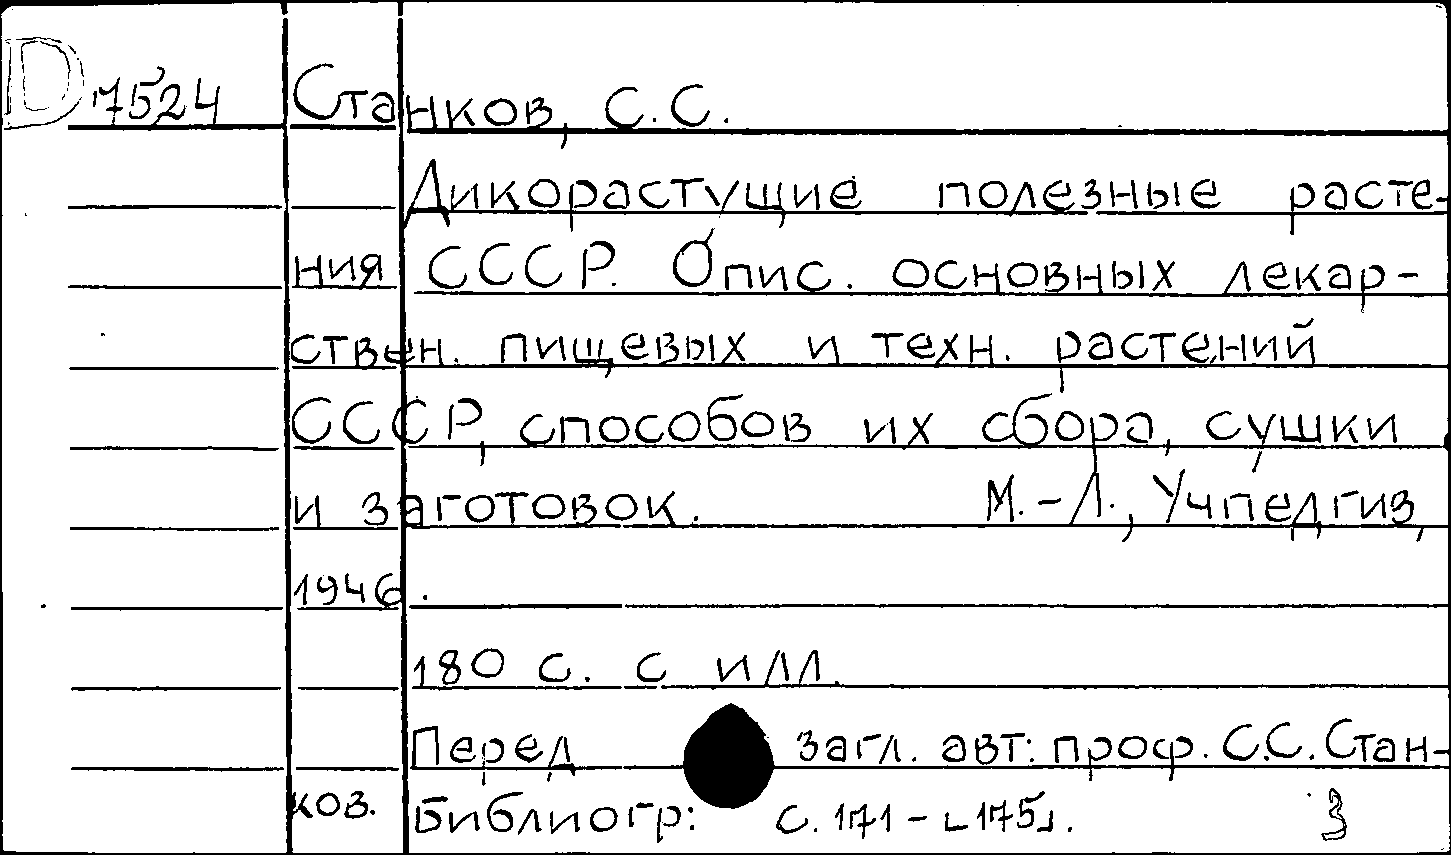 D 7524 Станков, С.С.
Дикорастущие полезные расте-
ния СССР. Опис. основных лекар-
ствен. пищевых и техн. растений
СССР, способов их сбора, сушки
и заготовок. М.-Л., Учпедгиз,
1946.
180 с. с илл.
Перед загл. авт: проф. С.С. Стан-
ков. Библиогр: с. 171 - [175]. 3